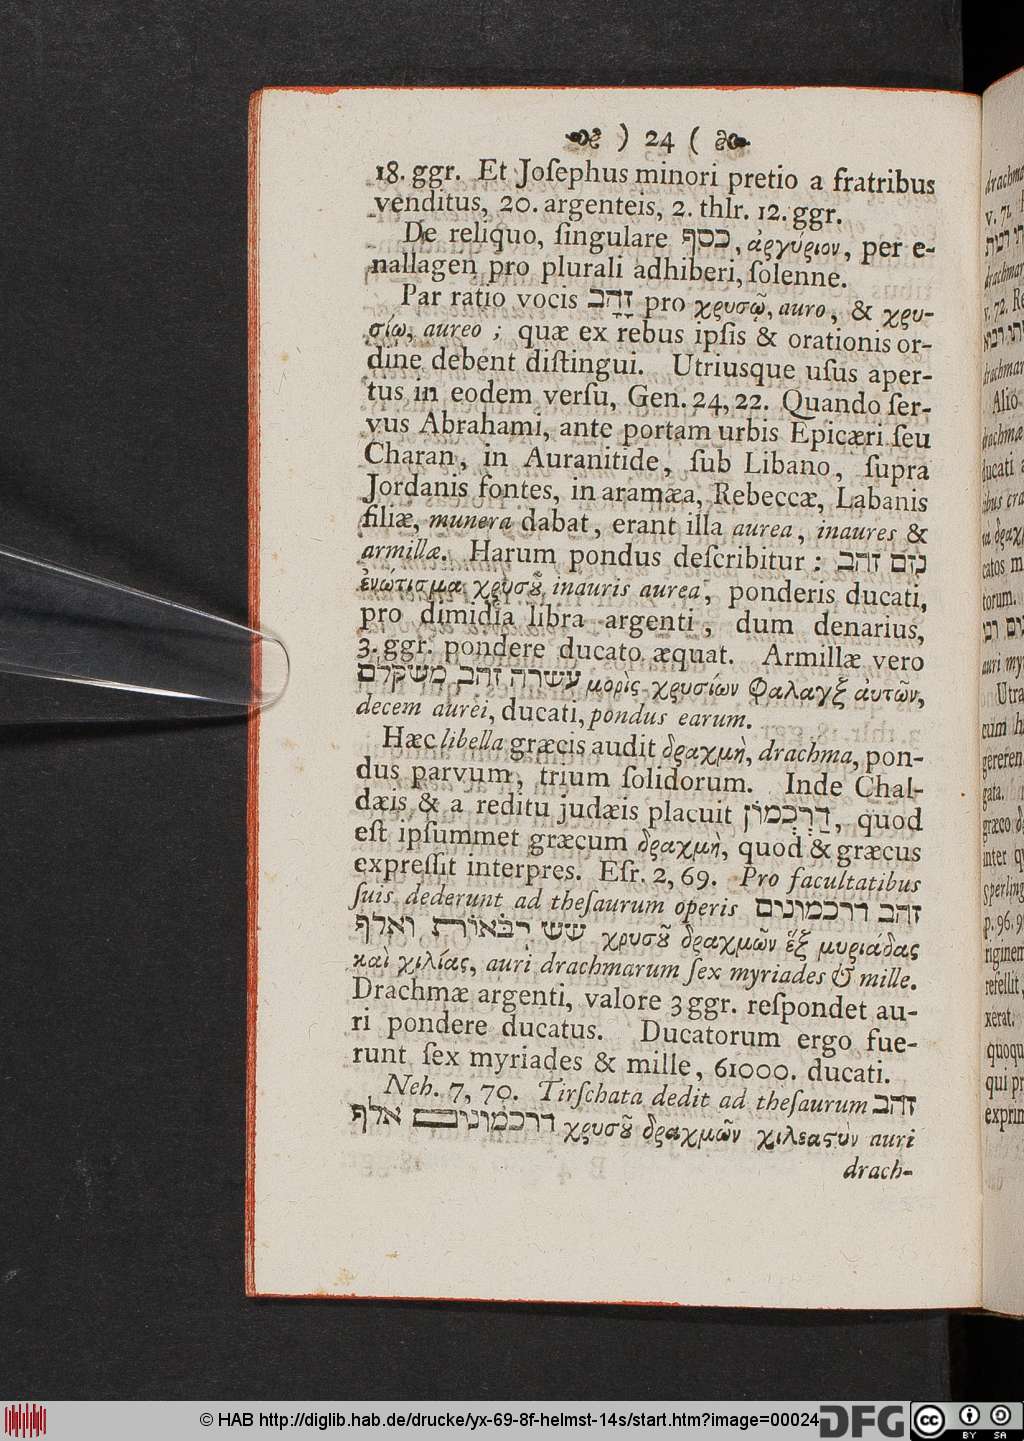 ) 24 (
18. ggr. Et Joſephus minori pretio a fratribus
venditus, 20. argenteis, 2. thlr. 12. ggr.
De reliquo, ſingulare כסף, ἀργύριον, per e-
nallagen pro plurali adhiberi, ſolenne.
Par ratio vocis זָהָב pro χρυσῷ, auro, & χρυ-
σίῳ, aureo ; quæ ex rebus ipſis & orationis or-
dine debent diſtingui. Utriusque uſus aper-
tus in eodem verſu, Gen. 24, 22. Quando ſer-
vus Abrahami, ante portam urbis Epicæri ſeu
Charan, in Auranitide, ſub Libano, ſupra
Jordanis fontes, in aramæa, Rebeccæ, Labanis
filiæ, munera dabat, erant illa aurea, inaures &
armillæ. Harum pondus deſcribitur: נזם זהב
ἐνώτισμα χρυσȣ͂, inauris aurea, ponderis ducati,
pro dimidia libra argenti, dum denarius,
3. ggr. pondere ducato æquat. Armillæ vero
עשרה זהב משקלם μορὶς χρυσίων Φαλαγξ ἀυτῶν,
decem aurei, ducati, pondus earum.
Hæc libella græcis audit δραχμὴ, drachma, pon-
dus parvum, trium ſolidorum. Inde Chal-
dæis & a reditu judæis placuit דַּרְכְּמוֹן, quod
eſt ipſummet græcum δραχμὴ, quod & græcus
expreſſit interpres. Eſr. 2, 69. Pro facultatibus
ſuis dederunt ad theſaurum operis זהב דרכמונים
שש רבאורת ואלף χρυσȣ͂ δραχμῶν ἕξ μυριάδας
καὶ χιλίας, auri drachmarum ſex myriades & mille.
Drachmæ argenti, valore 3 ggr. reſpondet au-
ri pondere ducatus. Ducatorum ergo fue-
runt ſex myriades & mille, 61000. ducati.
Neh. 7, 70. Tirſchata dedit ad theſaurum זהב
דרכמונים אלף χρυσȣ͂ δραχμῶν auri
drach-
© HAB http://diglib.hab.de/drucke/yx-69-8f-helmst-14s/start.htm?image=00024
DFG
cc BY SA